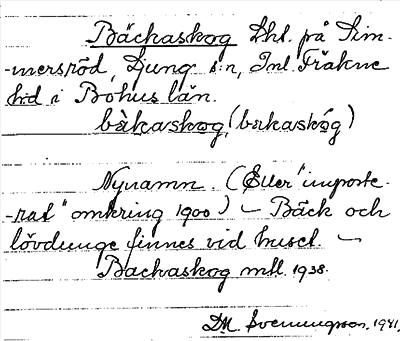 Bäckaskog Lht. på Sim-
-mersröd, Ljung s:n, Inl. Fräkne
h:d i Bohus län.
bàkaskog, (bakaskóg)
Nynamn. (Eller "importe-
-rat" omkring 1900) – Bäck och
lövdunge finnes vid huset. –
Backaskog mtl. 1938.
DM. Svenungsson. 1941.